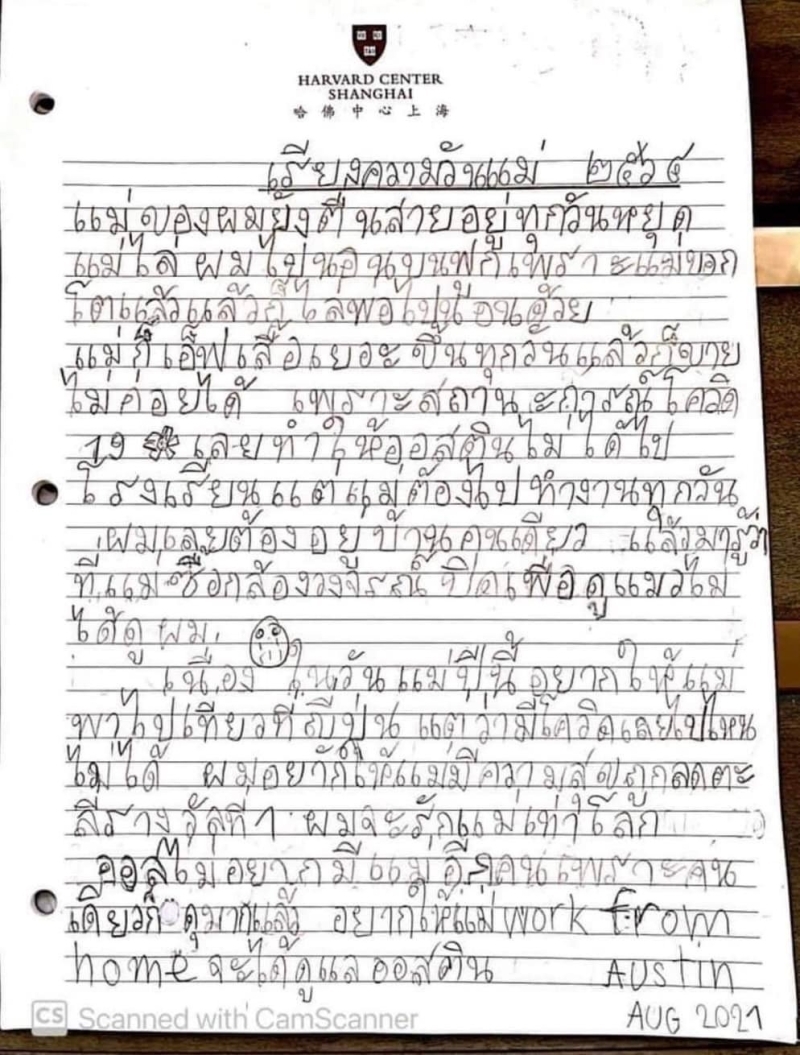 HARVARD CENTER
SHANGHAI
哈佛中心上海
เรียงความวันแม่ ๒๕๖๔
แม่ของผมยังตื่นสายอยู่ทุกวันหยุด
แม่ไล่ผมไปนอนบนฟูกเพราะแม่บอก
โตแล้วแล้วก็ไล่พ่อไปนอนด้วย
แม่ก็เอ็ฟเสื้อเยอะขึ้นทุกวันแล้วก็ขาย
ไม่ค่อยได้ เพราะสถานะการณ์โควิด
19 เลยทำให้ออสตินไม่ได้ไป
โรงเรียนแต่แม่ต้องไปทำงานทุกวัน
ผมเลยต้องอยู่บ้านคนเดียว แล้วมารู้ว่า
ที่แม่ซื้อกล้องวงจรณ์ปิดเพื่อดูแมวไม่
ได้ดูผม
เนื่องในวันแม่ปีนี้อยากให้แม่
พาไปเที่ยวที่ญี่ปุ่น แต่ว่ามีโควิดเลยไปไหน
ไม่ได้ ผมอยากให้แม่มีความสุขถูกลดตะ
ลีรางวัลที่1 ผมจะรักแม่เท่าโลก
ออสไม่อยากมีแม่อีกคนเพราะคน
เดียวก็ดุมากแล้ว อยากให้แม่work from
homeจะได้ดูแลออสติน AUSTIN
AUG 2021
CS Scanned with CamScanner